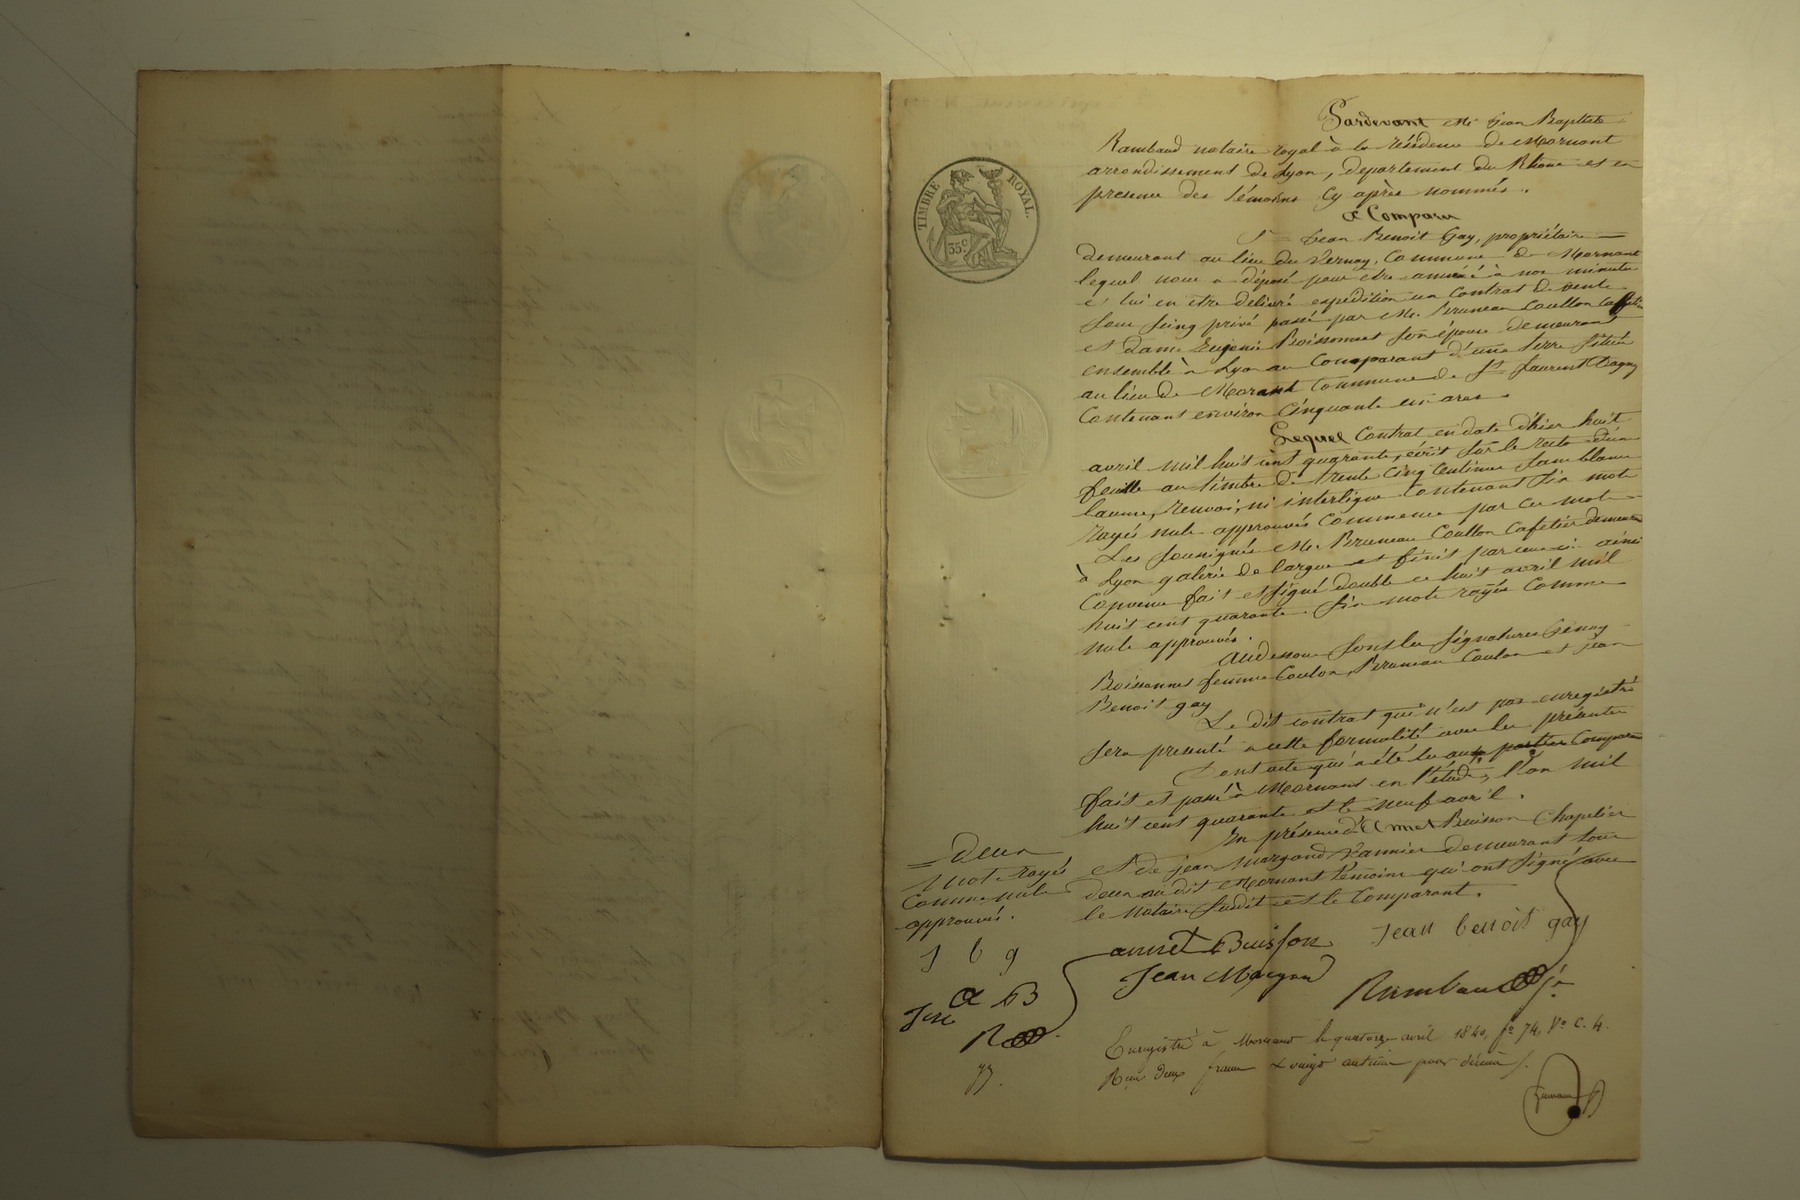 TIMBRE ROYAL.
35 c
Pardevant Me Jean Baptiste
Rambaud notaire royal à la résidence de Mornant
arrondissement de Lyon, département du Rhône et en
presence des témoins cy après nommés.
a Comparu
Sr Jean Benoit Gay, propriétaire
demeurant au lieu du Vernay, Commune de Mornant
lequel nous a déposé pour être annexé à nos minutes
et lui en être délivré expédition un Contrat de vente
sous seing privé passé par Mr. Bruneau Coullon Cafetier
et dame Eugénie Boissonnet son épouse demeurant
ensemble à Lyon au Comparant d'une terre située
au lieu de Morant Commune de St Laurent Dagny
Contenant environ Cinquante six ares.
Lequel Contrat en date d'hier huit
avril mil huit cent quarante, écrit sur le recto d'une
feuille au timbre de trente cinq Centimes sans blanc
lacune, renvoi, ni interligne Contenant six mots
rayés nuls approuvés Commence par ces mots
Les Sousignés Mr. Bruneau Coullon Cafetier demeurant
à Lyon galerie de l'argue et finit par ceux-ci ainsi
Convenu fait et signé double ce huit avril mil
huit cent quarante. Six mots rayés Comme
nuls approuvés.
Audessous sont les signatures Genny
Boissonnet femme Coulon, Bruneau Coulon et jean
Benoit gay
Le dit contrat qui n'est pas enregistré
sera presenté à cette formalité avec les présentes
Dont acte qui a été lu aux parties Comparant
fait et passé à Mornant en l'étude, l'an mil
huit cent quarante et le neuf avril.
En présence d'Annet Buisson Chapelier
et de jean Margand Vannier demeurant tous
deux au dit Mornant témoins qui ont signé avec
le Notaire susdit et le Comparant.
Deux
mots rayés
Comme nuls
approuvés.
J b g
a B
R
annet Buisson
Jean benoit gay
Jean Margand
Rambaud
Enregistré à Mornant le quatorze avril 1840, fo 74, Vo C. 4.
Reçu deux francs & vingt centimes pour décime